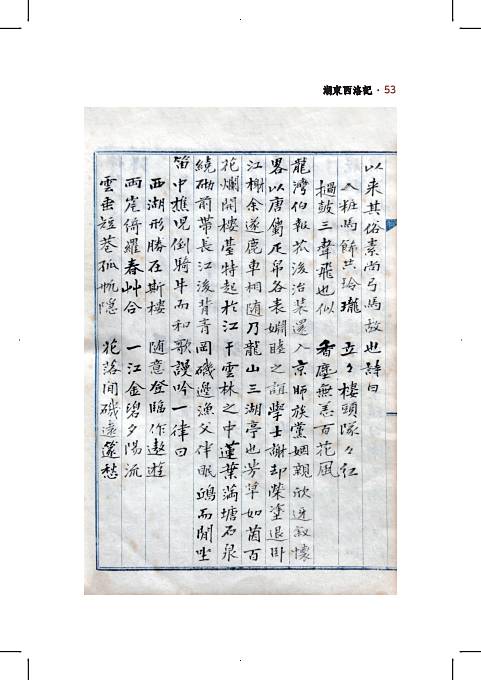 湖東西洛記 · 53
以来其俗素尚弓馬故也詩曰
人粧馬餙共玲瓏 立々樓頭隊々紅
撾鼓三聲飛也似 香塵無恙百花風
龍灣伯報於淩治装還入京師族黨姻親欣迓叙懷
畧以唐儶疋帛各表嫺睦之誼學士謝却榮塗退卧
江榭余遂鹿車相随乃龍山三湖亭也芳草如茵百
花爛開樓䑓特起於江干雲林之中蓮葉滿塘石泉
繞砌前帶長江後背青岡磯邊漁父伴眠鷗而閒坐
笛中樵児倒騎牛而和歌謾吟一律曰
西湖形勝在斯樓 随意登臨作遨遊
西崖綺羅春艸合 一江金碧夕陽流
雲垂短巷孤帆隱 花落閒磯遠篴愁